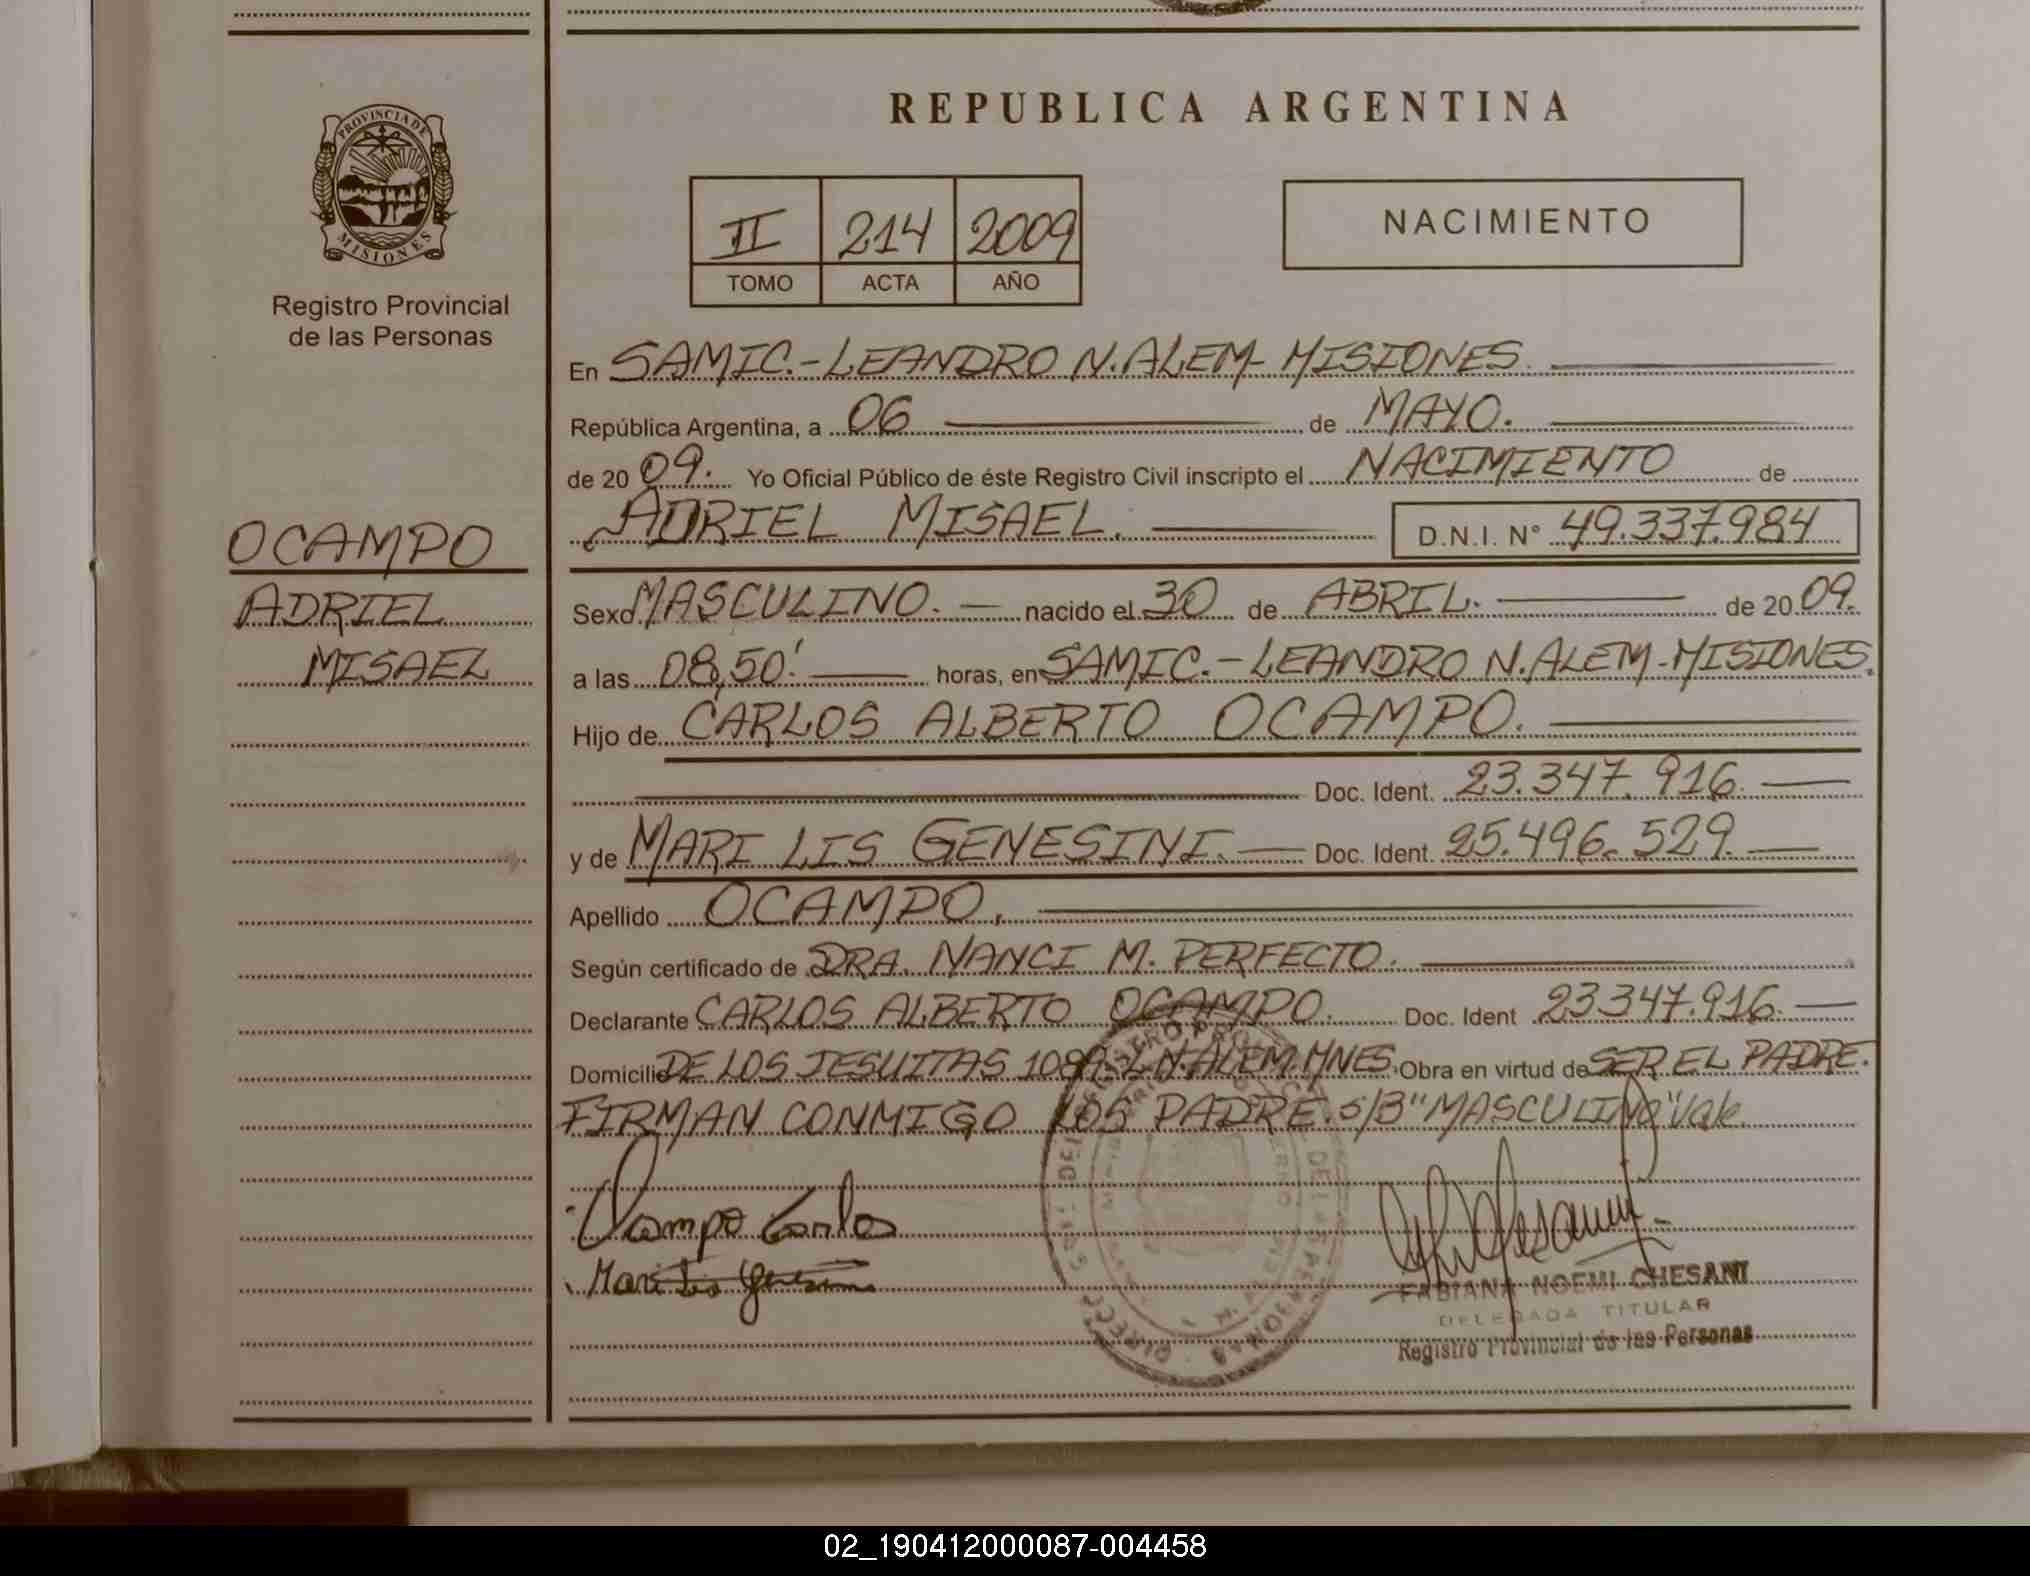 REPUBLICA ARGENTINA
PROVINCIA DE
MISIONES
Registro Provincial
de las Personas
II 214 2009
TOMO ACTA AÑO
NACIMIENTO
En SAMIC.-LEANDRO N. ALEM- MISIONES.
República Argentina, a 06 de MAYO.
de 20 09. Yo Oficial Público de éste Registro Civil inscripto el NACIMIENTO de
ADRIEL MISAEL. D.N.I. N° 49.337.984
OCAMPO
ADRIEL
MISAEL
Sexo MASCULINO. nacido el 30 de ABRIL. de 20 09.
a las 08,50' horas, en SAMIC.-LEANDRO N. ALEM-MISIONES.
Hijo de CARLOS ALBERTO OCAMPO.
Doc. Ident. 23.347.916.
y de MARI LIS GENESINI. Doc. Ident. 25.496.529.
Apellido OCAMPO.
Según certificado de DRA. NANCI M. PERFECTO.
Declarante CARLOS ALBERTO OCAMPO. Doc. Ident 23347.916.
Domicilio DE LOS JESUITAS L.N.ALEM.MNES. Obra en virtud de SER EL PADRE.
FIRMAN CONMIGO LOS PADRE. S/B "MASCULINO" Vale.
Ocampo Carlos
Mari Lis Genesini
FABIANA NOEMI CHESANI
DELEGADA TITULAR
Registro Provincial de las Personas
02_190412000087-004458